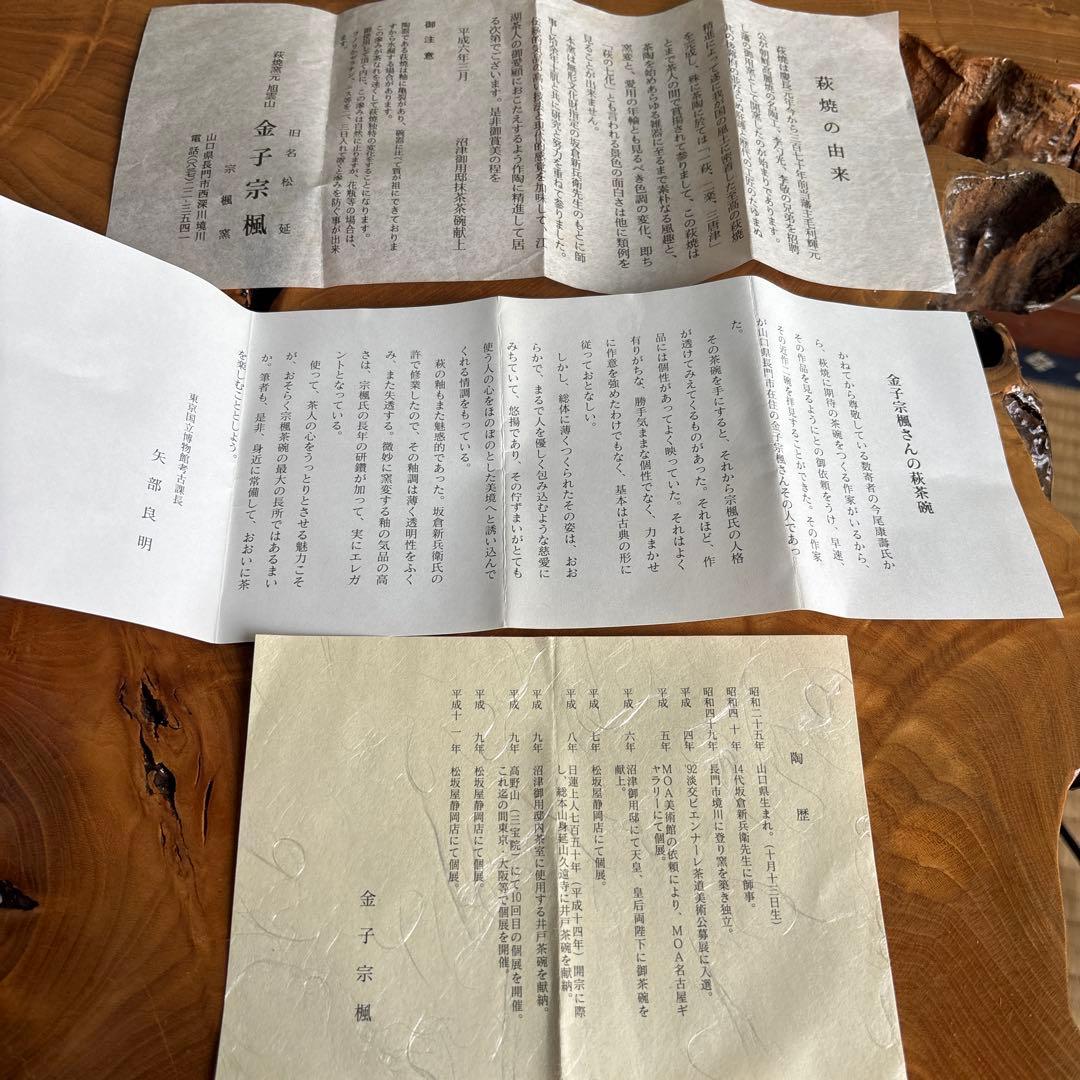 萩焼の由来
萩焼は慶長五年今から三百七十年前当藩主毛利輝元
公が朝鮮高麗焼の名陶工、李勺光、李敬の兄弟を招聘
し藩の御用窯として開窯したのが始まりであります。
精進によって遂に我が国の風土に密着した至高の萩焼
を完成し、殊に茶陶に於ては「一萩、二楽、三唐津」
とまで茶人の間で賞揚されて参りまして、この萩焼は
茶陶を始めあらゆる雑器に至るまで素朴なる風趣と、
窯変と、愛用の年輪とも見るべき色調の変化、即ち
「萩の七化」とも言われる景色の面白さは他に類例を
見ることが出来ません。
本窯は無形文化財指定の坂倉新兵衛先生のもとに師
事し拾余年土肌と共に研究と努力を重ねて参りました。
伝統的な格調の高い格技と現代的感覚を加味して、江
湖茶人の御愛顧におこたえするよう作陶に精進して居
る次第でございます。是非御賞美の程を
平成六年二月　沼津御用邸抹茶茶碗献上
御注意
陶器である萩焼は釉に亀裂があり、磁器に比べて質が粗にできておりま
すから水漏する場合があります。
この滲みがあなれを速くして萩焼独特の変化をすることになります。
御使用して頂く内に、この滲みは自然に止りますが、花瓶等の場合は、
三日入れて置くと滲みを防ぐ事が出来
ます。
旧名松延
萩焼窯元 旭雲山　金子宗楓
宗楓窯
山口県長門市西深川境川
金子宗楓さんの萩茶碗
かねてから尊敬している数寄者の今尾康壽氏か
ら、萩焼に期待の茶碗をつくる作家がいるから、
その作品を見るようにとの御依頼をうけ、早速、
その近作二碗を拝見することができた。その作家
が山口県長門市在住の金子宗楓さんその人であっ
た。
その茶碗を手にすると、それから宗楓氏の人格
が透けてみえてくるものがあった。それほど、作
品には個性があってよく映っていた。それはよく
有りがちな、勝手気ままな個性でなく、力まかせ
に作意を強めたわけでもなく、基本は古典の形に
従っておとなしい。
しかし、総体に薄くつくられたその姿は、おお
らかで、まるで人を優しく包み込むような慈愛に
みちていて、悠揚であり、その佇ずまいがとても
使う人の心をほのぼのとした美境へと誘い込んで
くれる情調をもっている。
萩の釉もまた魅惑的であった。坂倉新兵衛氏の
許で修業したので、その釉調は薄く透明性をふく
み、また失透する。微妙に窯変する釉の気品の高
さは、宗楓氏の長年の研鑽が加って、実にエレガ
ントとなっている。
使って、茶人の心をうっとりとさせる魅力こそ
が、おそらく宗楓茶碗の最大の長所ではあるまい
か。筆者も、是非、身近に常備して、おおいに茶
を楽しむこととしよう。
東京国立博物館考古課長
矢部良明
陶歴
昭和二十五年　山口県生まれ。（十月十三日生）
昭和四十年　14代坂倉新兵衛先生に師事。
昭和四十九年　長門市境川に登り窯を築き独立。
平成四年　'92淡交ビエンナーレ茶道美術公募展に入選。
平成五年　MOA美術館の依頼により、MOA名古屋ギ
ャラリーにて個展。
平成六年　沼津御用邸にて天皇、皇后両陛下に御茶碗を
献上。
平成七年　松坂屋静岡店にて個展。
平成八年　日蓮上人七百五十年（平成十四年）開宗に際
し、総本山身延山久遠寺に井戸茶碗を献納。
平成九年　沼津御用邸内茶室に使用する井戸茶碗を献納。
平成九年　高野山（三宝院）にて10回目の個展を開催。
これ迄の間東京・大阪等で個展を開催。
平成九年　松坂屋静岡店にて個展。
平成十一年　松坂屋静岡店にて個展。
金子宗楓